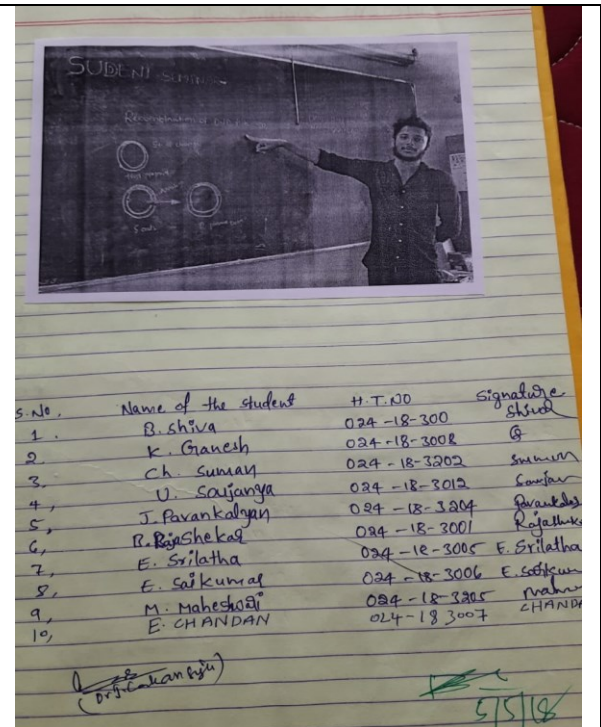 SUDENT
S. No. Name of the student H.T.NO Signature
1. B. Shiva 024-18-300 Shiva
2 K. Ganesh 024-18-3008 G
3. Ch. Suman 024-18-3202 Summon
4, U. Soujanya 024-18-3012 Soujan
5, J. Pavankalyan 024-18-3204 Pavankaly
6, R. RajaShekar 024-18-3001
7, E. Srilatha 024-18-3005 E. Srilatha
8, E. Saikumar 024-18-3006 E. Saikum
9, M. Maheshwari 024-18-3205 Mahe
10, E. CHANDAN 024-18 3007 CHANDA
5/5/18